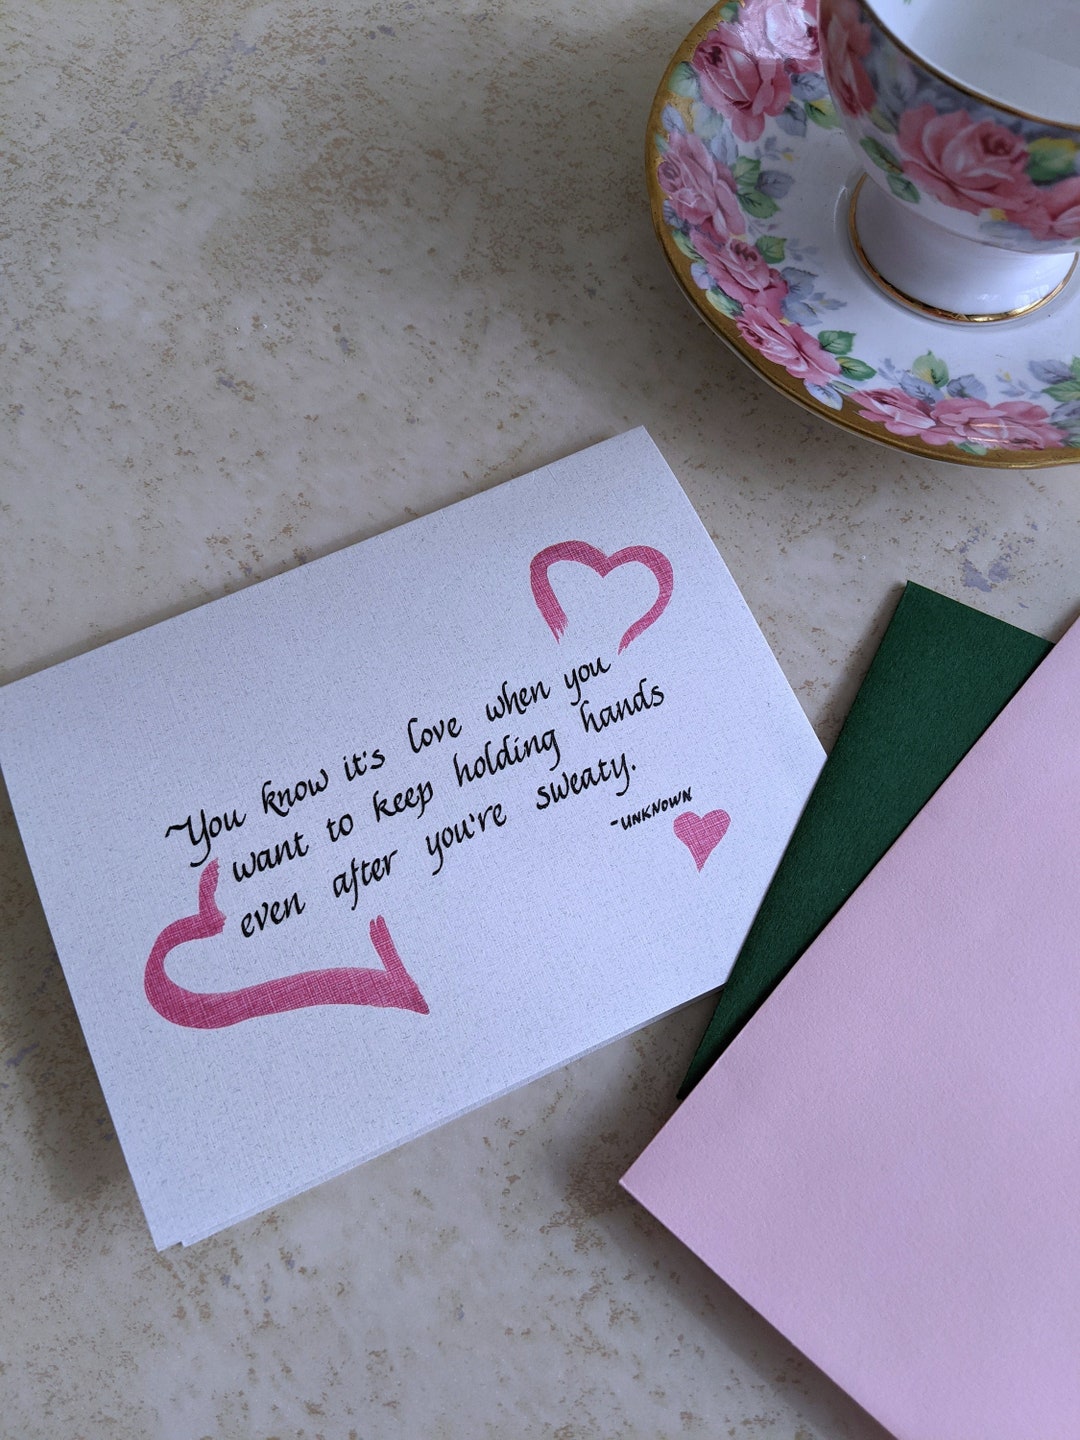 ~You know it's love when you
want to keep holding hands
even after you're sweaty.
-UNKNOWN